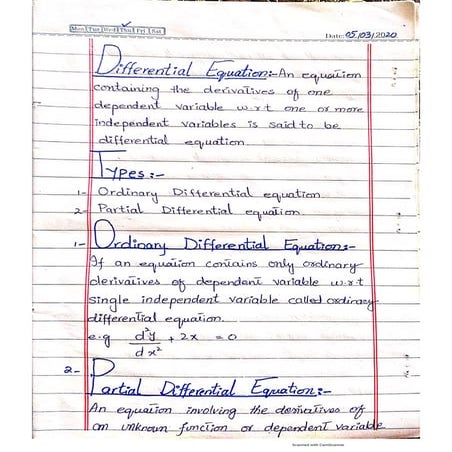 Mon Tue Wed Thu Fri Sat
Date: 05/03/2020
Differential Equation:- An equation
containing the derivatives of one
dependent variable w.r.t one or more
independent variables is said to be
differential equation.
Types:-
1- Ordinary Differential equation.
2- Partial Differential equation.
1- Ordinary Differential Equation:-
If an equation contains only ordinary
derivatives of dependent variable w.r.t
single independent variable called ordinary
differential equation.
e.g d²y/dx² + 2x = 0
2- Partial Differential Equation:-
An equation involving the derivatives of
an unknown function or dependent variable
Scanned with CamScanner